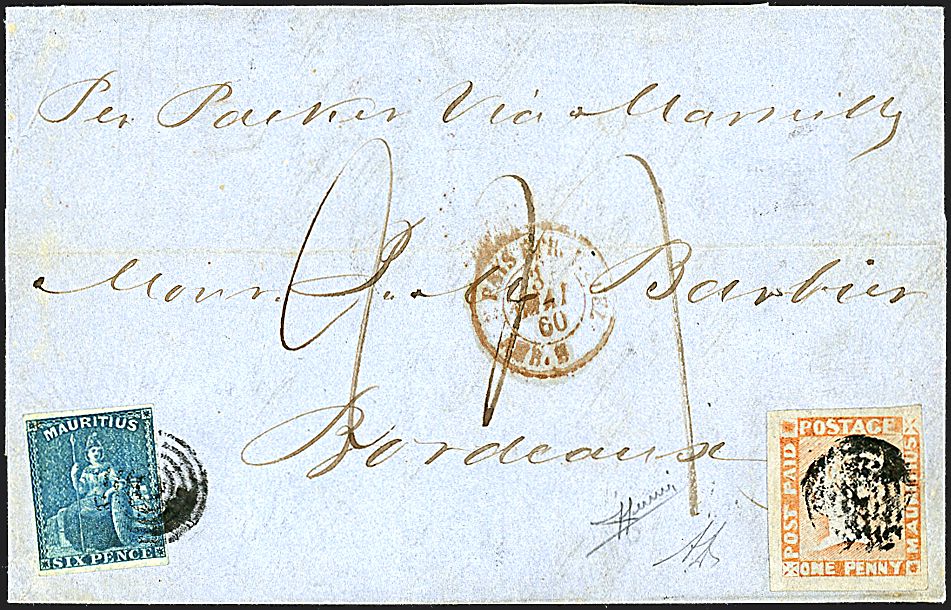 Per Packer Via Marseilly
Monr. P. M. Barbier
Bordeaux
MAI
60
MAURITIUS
SIX PENCE
POSTAGE
POST PAID
MAURITIUS
ONE PENNY